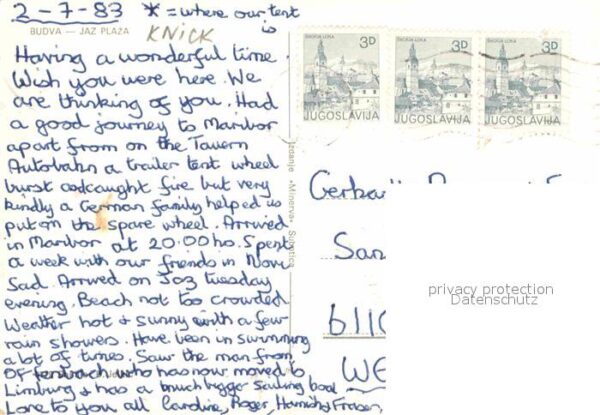 2-7-83 * = where our tent is
BUDVA — JAZ PLAŽA
KNICK
Having a wonderful time.
Wish you were here. We
are thinking of you. Had
a good journey to Maribor
apart from on the Tauern
Autobahn a trailer tent wheel
burst and caught fire but very
kindly a German family helped us
put on the spare wheel. Arrived
in Maribor at 20.00 ho. Spent
a week with our friends in Novi
Sad. Arrived on Jaz tuesday
evening. Beach not too crowded
Weather hot + sunny with a few
rain showers. Have been in swimming
a lot of times. Saw the man from
Offenbach who has now moved to
Limburg & has a much bigger sailing boat
Love to you all Caroline, Roger, Hamish & Fraser,
ŠKOFJA LOKA 3D
JUGOSLAVIJA
ŠKOFJA LOKA 3D
JUGOSLAVIJA
ŠKOFJA LOKA 3D
JUGOSLAVIJA
Izdanje «Minerva» Subotica
San
6110
WE
privacy protection
Datenschutz